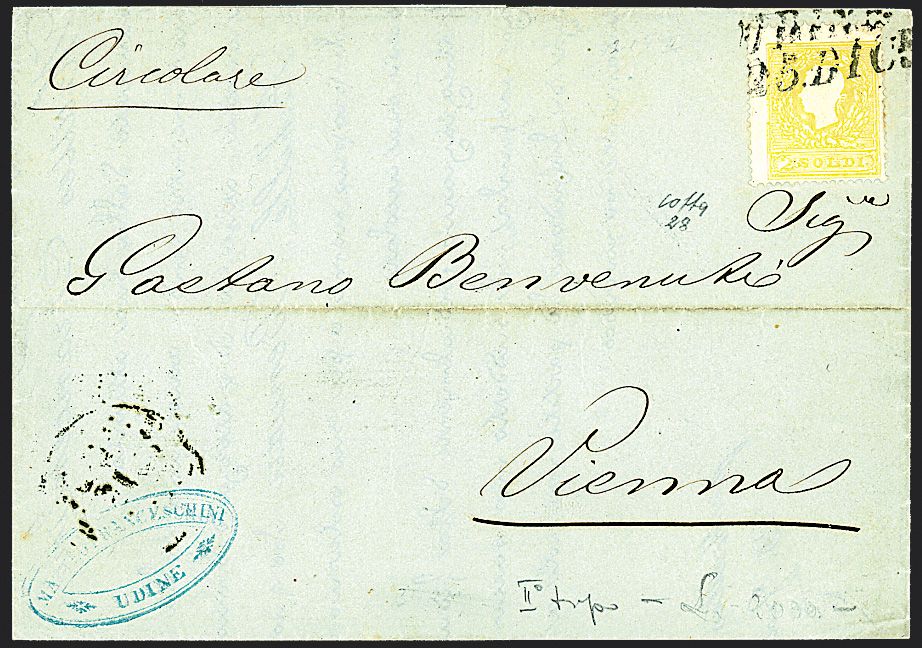 Circolare
UDINE
25. DIC
2 SOLDI
cotta
28
Sig.r
Gaetano Benvenuti
Vienna
FRANCESCHINI
UDINE
II° tipo -